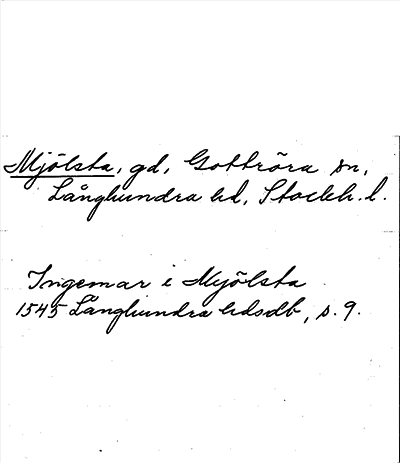 Mjölsta, gd, Gottröra sn,
Långhundra hd, Stockh. l.
Ingemar i Mjölsta
1545 Långhundra hdsdb, s. 9.